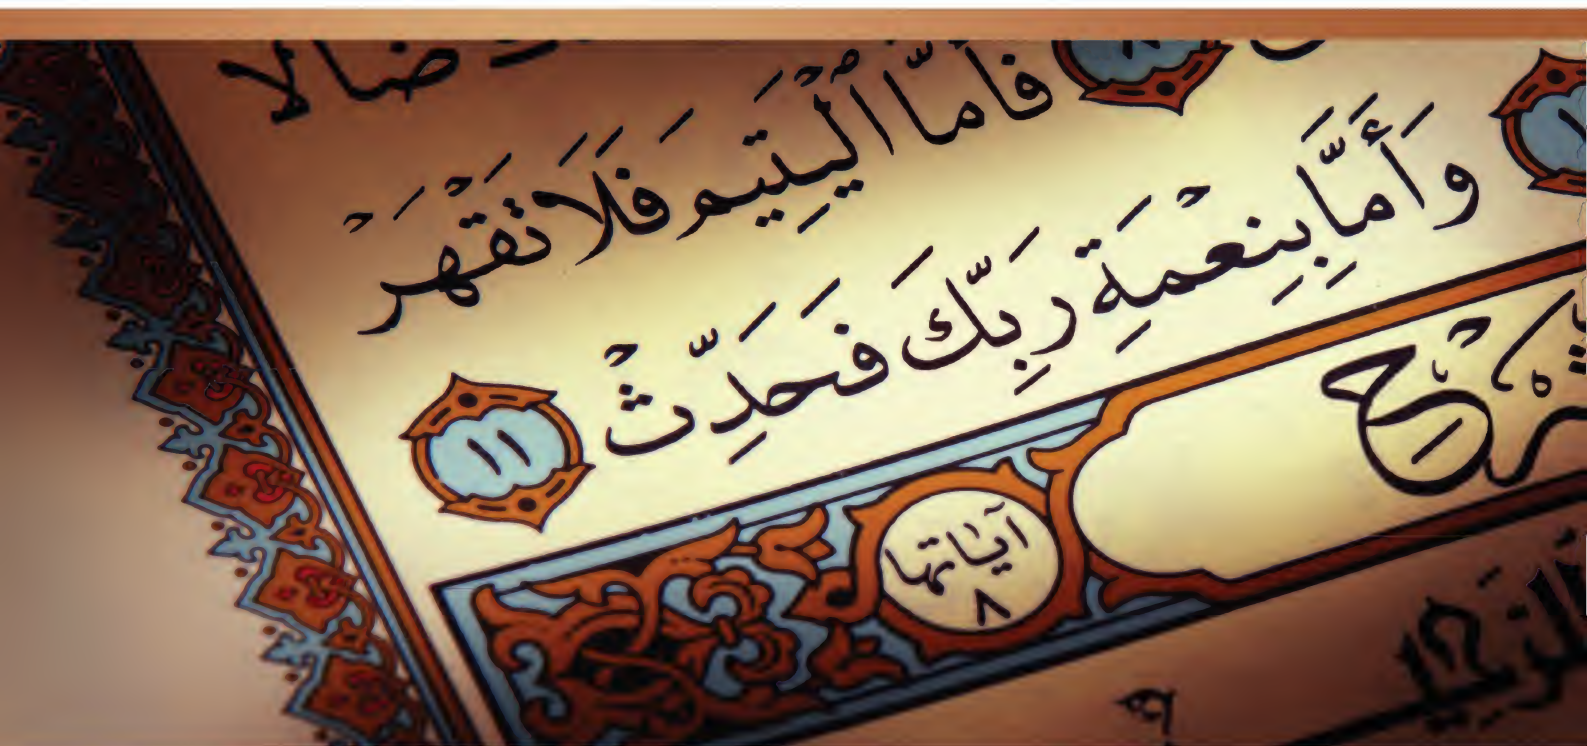 ضَالًّا
٨ فَأَمَّا ٱلْيَتِيمَ فَلَا تَقْهَرْ
وَأَمَّا بِنِعْمَةِ رَبِّكَ فَحَدِّثْ ١١
آيَاتُهَا ٨